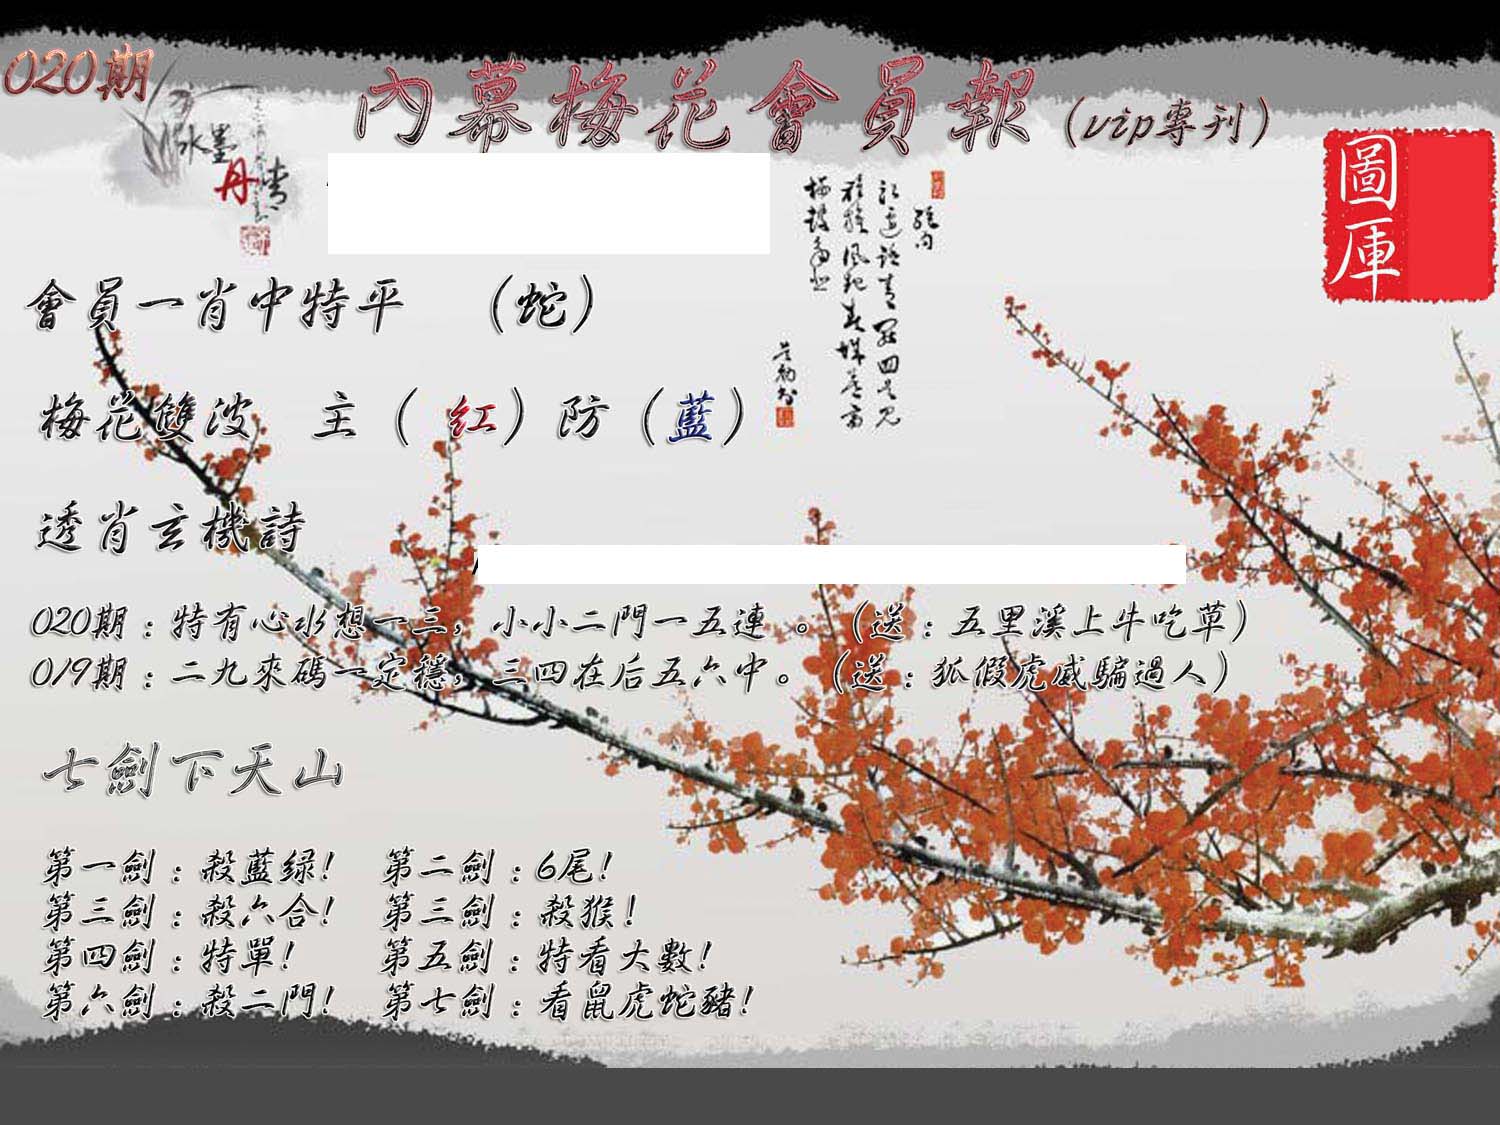 020期
內幕梅花會員報（vip專刊）
水墨
丹青
圖庫
會員一肖中特平 （蛇）
梅花雙波 主（紅）防（藍）
透肖玄機詩
020期：特有心水想一三，小小二門一五連 。（送：五里溪上牛吃草）
019期：二九來碼一定穩，三四在后五六中。（送：狐假虎威騙過人）
七劍下天山
第一劍：殺藍绿! 第二劍：6尾!
第三劍：殺六合! 第三劍：殺猴!
第四劍：特單! 第五劍：特看大數!
第六劍：殺二門! 第七劍：看鼠虎蛇豬!